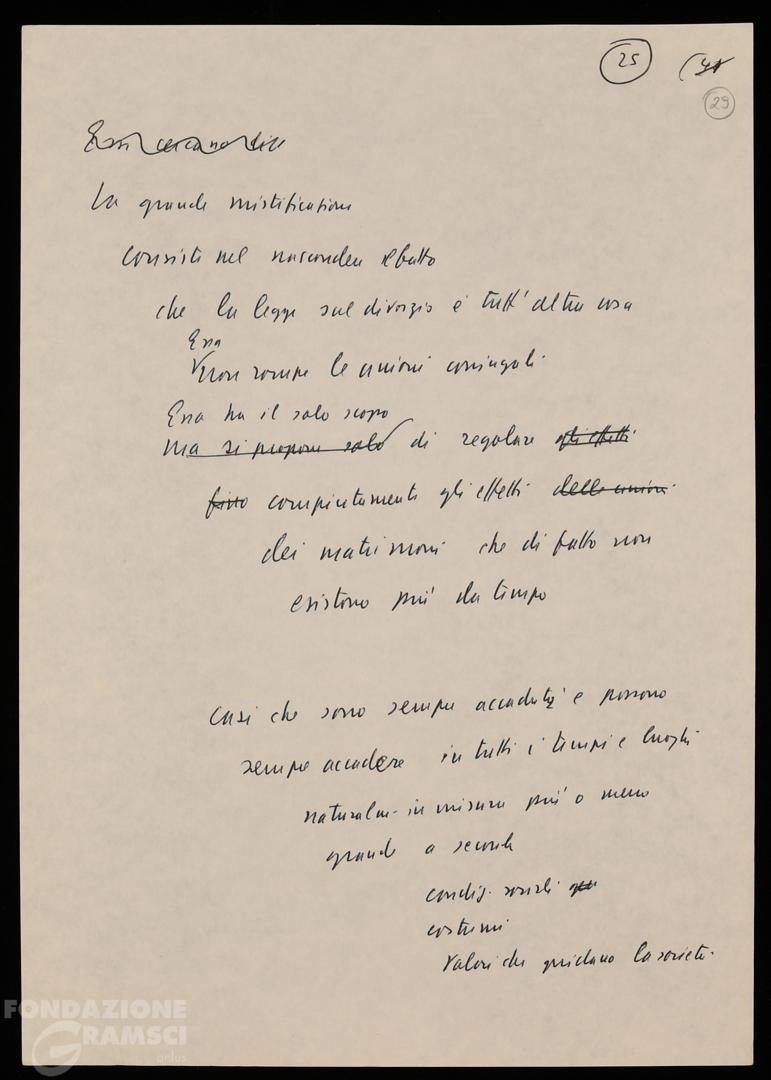 25
29
Essi cercano di
La grande mistificazione
consiste nel nascondere il fatto
che la legge sul divorzio è tutt'altra cosa
Essa
non rompe le unioni coniugali.
Essa ha il solo scopo
ma si propone solo di regolare gli effetti
compiutamente gli effetti delle unioni
dei matrimoni che di fatto non
esistono più da tempo
casi che sono sempre accaduti e possono
sempre accadere in tutti i tempi e luoghi
naturalm. in misura più o meno
grande a seconda
condiz. sociali
costumi
valori che guidano la società.
FONDAZIONE
GRAMSCI
onlus